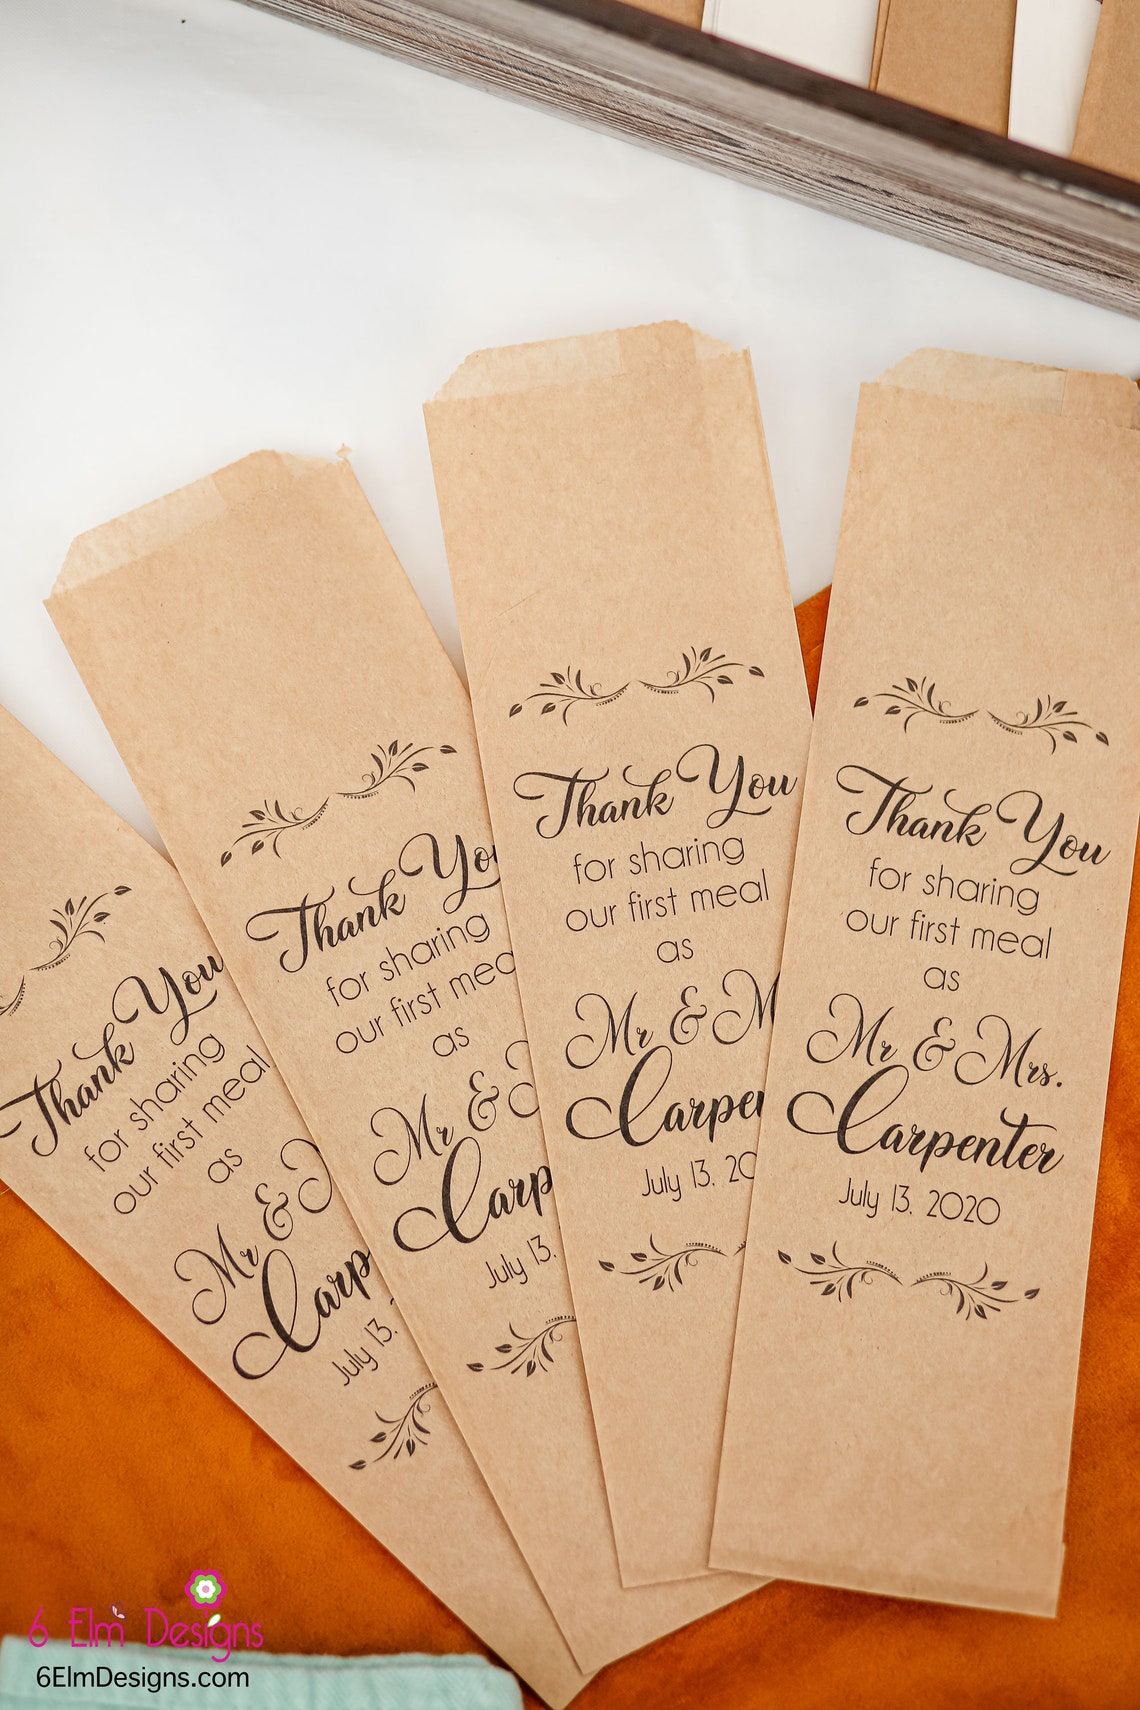 Thank You
for sharing
our first meal
as
Mr &
Carp
July 13,
Thank You
for sharing
our first meal
as
Mr &
Carp
July 13,
Thank You
for sharing
our first meal
as
Mr & M
Carpen
July 13, 20
Thank You
for sharing
our first meal
as
Mr & Mrs.
Carpenter
July 13, 2020
6 Elm Designs
6ElmDesigns.com